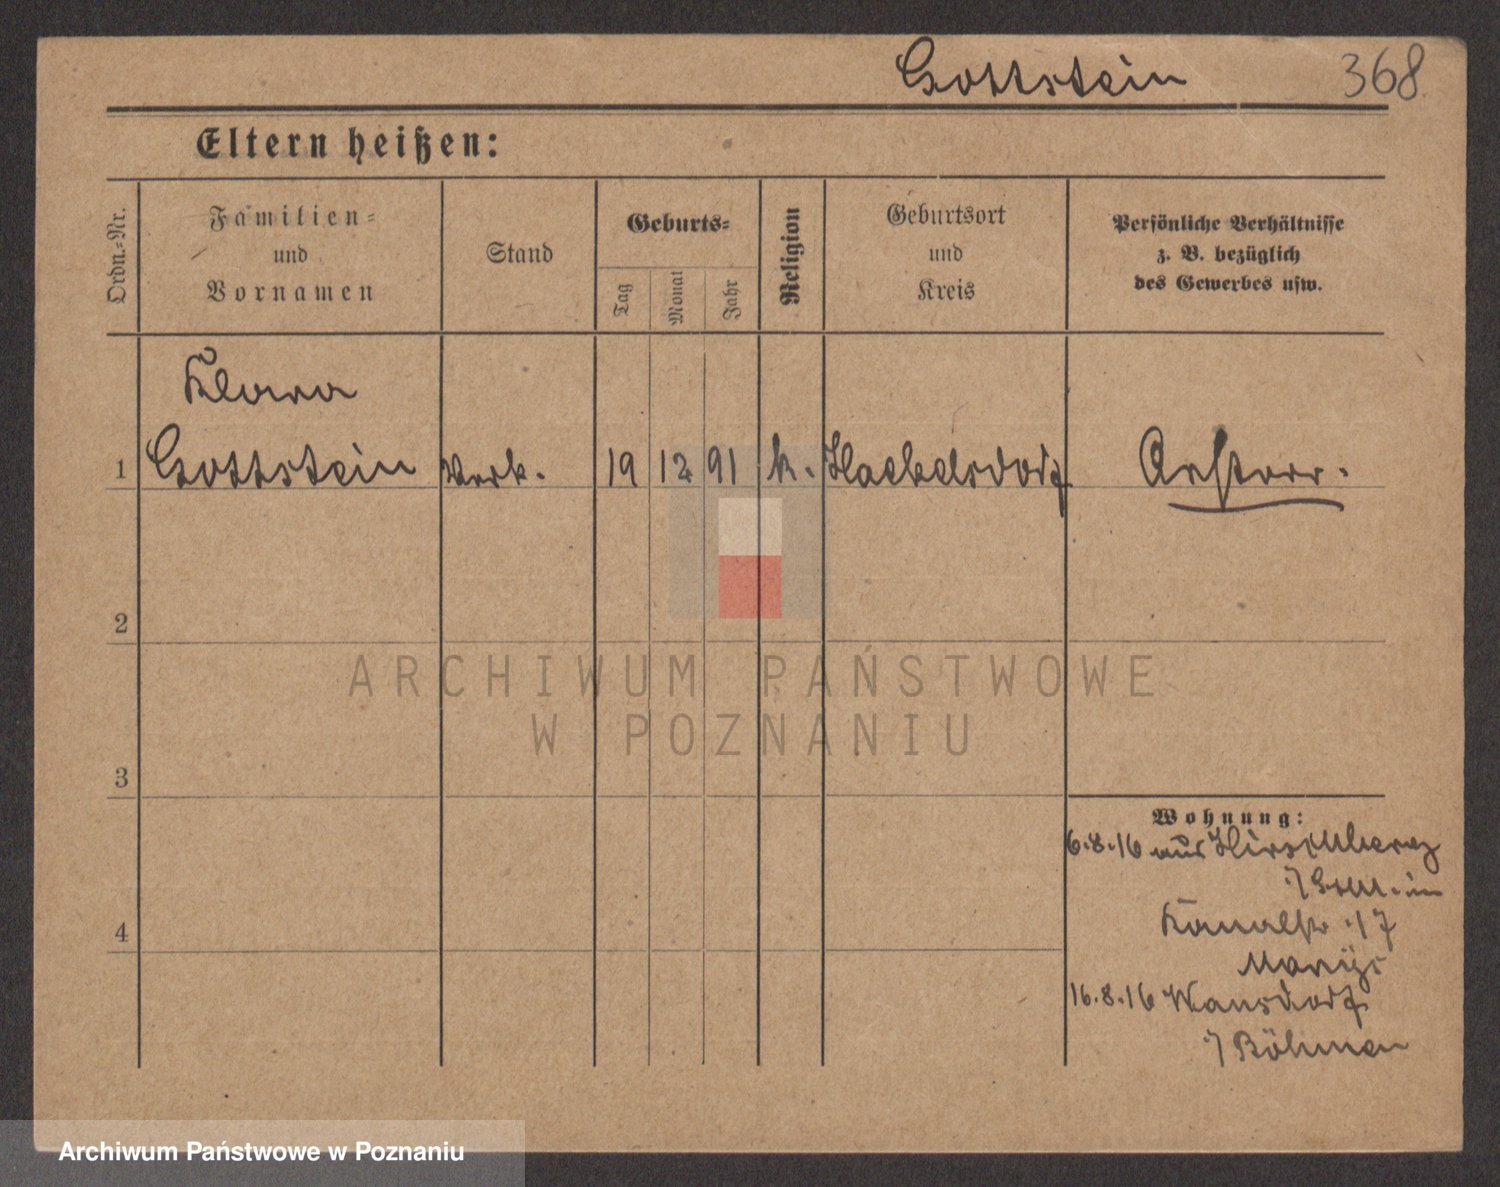 Gottstein 368
Eltern heißen:
Ordn.-Nr.
Familien-
und
Vornamen
Stand
Geburts-
Tag
Monat
Jahr
Religion
Geburtsort
und
Kreis
Persönliche Verhältnisse
z. B. bezüglich
des Gewerbes usw.
Klara
1 Gottstein Verk. 19 12 91 k. Hackelsdorf Österr.
2
3
4
Wohnung:
6.8.16 aus Hirschberg
Kanalstr 17
16.8.16 Warnsdorf
i/ Böhmen
ARCHIWUM PAŃSTWOWE
W POZNANIU
Archiwum Państwowe w Poznaniu